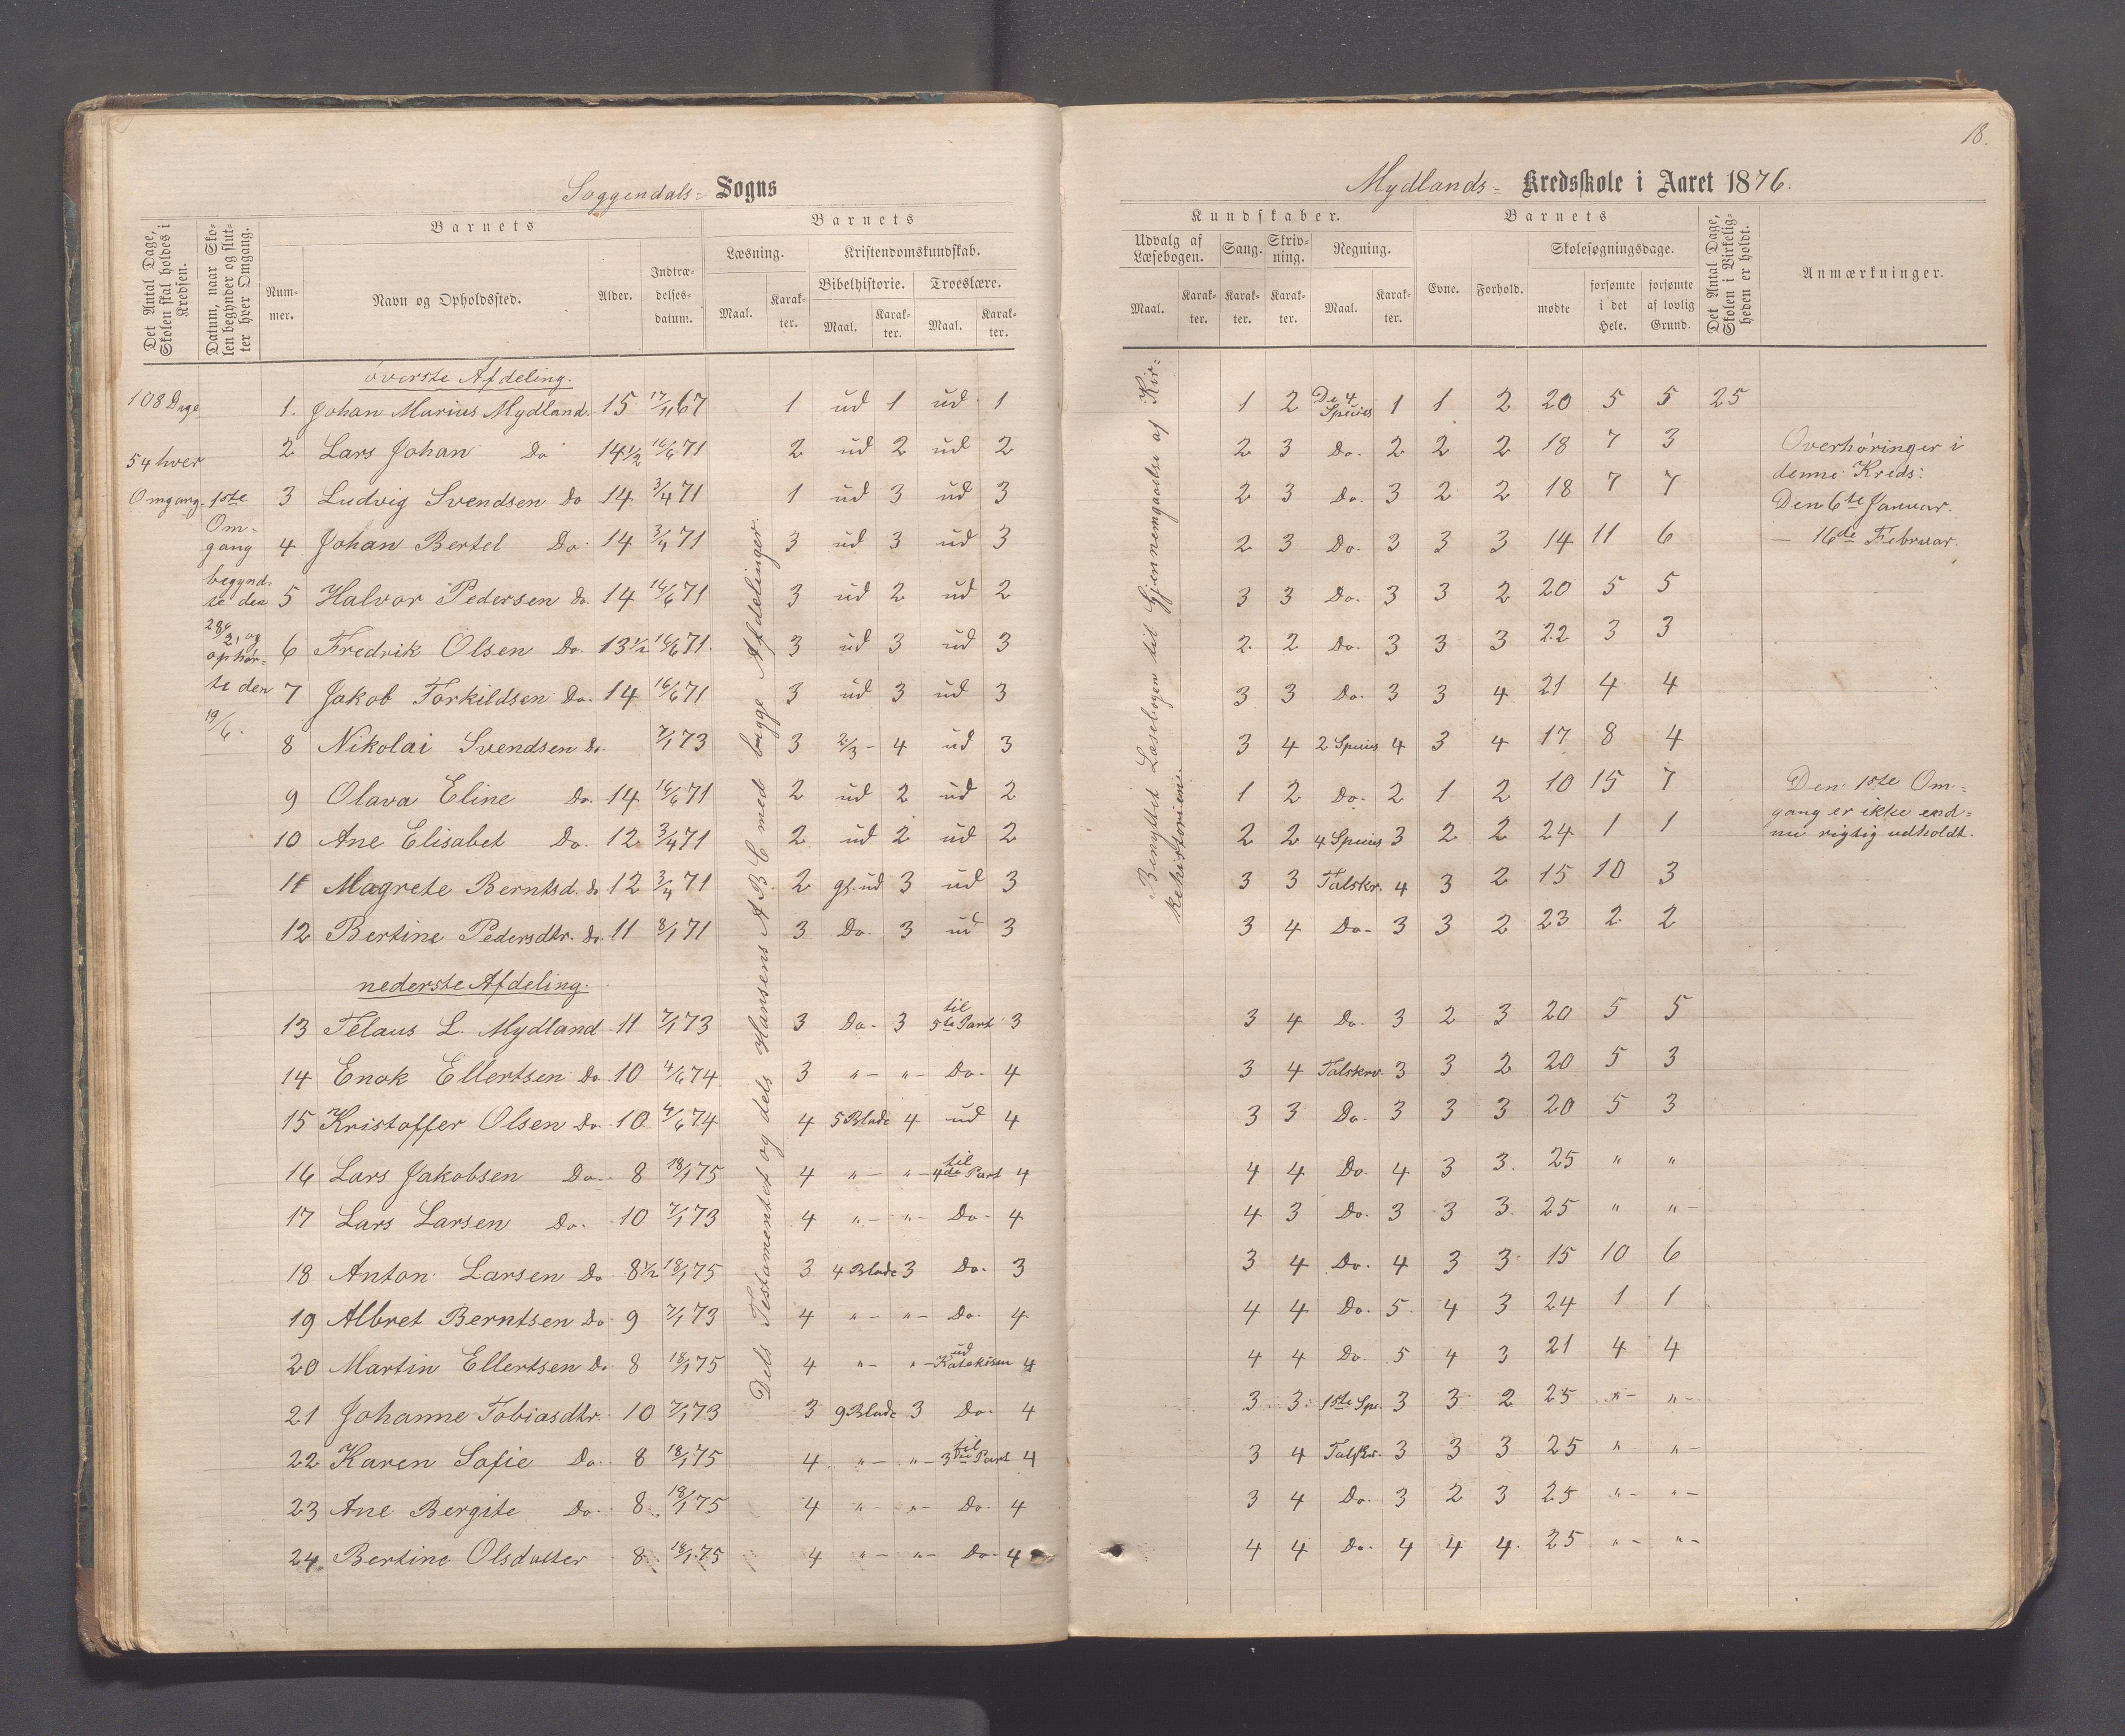 18.
Soggendals= Sogns
Mydlands= Kredsskole i Aaret 1876.
Det Antal Dage, Skolen skal holdes i Kredsen.
Datum, naar Skolen begynder og slutter hver Omgang.
Barnets
Nummer.
Navn og Opholdssted.
Alder.
Indtrædelsesdatum.
Barnets
Læsning.
Maal.
Karakter.
Kristendomskundskab.
Bibelhistorie.
Maal.
Karakter.
Troeslære.
Maal.
Karakter.
Kundskaber.
Udvalg af Læsebogen.
Maal.
Karakter.
Sang.
Karakter.
Skrivning.
Karakter.
Regning.
Maal.
Karakter.
Barnets
Evne.
Forhold.
Skolesøgningsdage.
mødte
forsømte i det Hele.
forsømte af lovlig Grund.
Det Antal Dage, Skolen i Virkeligheden er holdt.
Anmærkninger.
108 Dage
54 hver
Omgang.
1ste
Om=
gang
begynd=
te den
28/2, og
ophør=
te den
19/6.
Dels Testamentet og dels Hansens ABC med begge Afdelinger.
Benyttet Læsebogen til Gjennemgaaelse af Kir=
kehistorien.
øverste Afdeling.
1. Johan Marius Mydland. 15 17/11 67 1 ud 1 ud 1 1 2 De 4 Species 1 1 2 20 5 5 25
2 Lars Johan Do 14 1/2 16/6 71 2 ud 2 ud 2 2 3 Do. 2 2 2 18 7 3
3 Ludvig Svendsen Do 14 3/4 71 1 ud 3 ud 3 2 3 Do. 3 2 2 18 7 7
4 Johan Bertel Do. 14 3/4 71 3 ud 3 ud 3 2 3 Do. 3 3 3 14 11 6
5 Halvor Pedersen Do. 14 16/6 71 3 ud 2 ud 2 3 3 Do. 3 3 2 20 5 5
6 Fredrik Olsen Do. 13 1/2 16/6 71. 3 ud 3 ud 3 2 2 Do. 3 3 3 22 3 3
7 Jakob Torkildsen Do. 14 16/6 71 3 ud 3 ud 3 3 3 Do. 3 3 4 21 4 4
8 Nikolai Svendsen Do. 7/1 73 3 2/3 - 4 ud 3 3 4 2 Species 4 3 4 17 8 4
9 Olava Eline Do. 14 16/6 71 2 ud 2 ud 2 1 2 Do. 2 1 2 10 15 7
10 Ane Elisabet Do. 12 3/4 71 2 ud 2 ud 2 2 2 4 Species 3 2 2 24 1 1
11 Magrete Berntsd. Do 12 3/4 71 2 gl. ud 3 ud 3 3 3 Talskr. 4 3 2 15 10 3
12 Bertine Pedersdtr. Do. 11 8/1 71 3 Do. 3 ud 3 3 4 Do- 3 3 2 23 2 2
nederste Afdeling.
13 Telaus L. Mydland 11 7/1 73 3 Do. 3 til 5te Part 3 3 4 Do. 3 2 3 20 5 5
14 Enok Ellertsen Do 10 4/6 74 3 "- "- Do. 4 3 4 Talskr. 3 3 2 20 5 3
15 Kristoffer Olsen Do. 10 4/6 74 4 5 Blade 4 ud 4 3 3 Do. 3 3 3 20 5 3
16 Lars Jakobsen Do. 8 18/1 75 4 "- "- til 4de Part 4 4 4 Do. 4 3 3. 25 " "
17 Lars Larsen Do. 10 7/1 73 4 "- "- Do. 4 4 3 Do. 3 3 3 25 " "-
18 Anton Larsen Do 8 1/2 18/1 75 3 4 Blade 3 Do. 3 3 4 Do. 4 3 3 15 10 6
19 Albret Berntsen Do 9 7/1 73 4 "- "- Do. 4 4 4 Do. 5 4 3 24 1 1
20 Martin Ellertsen Do 8 18/1 75 4 "- "- ud Katekisen 4 4 4 Do. 5 4 3 21 4 4
21 Johanne Tobiasdtr. 10 7/1 73 3 9 Blade 3 Do. 4 3 3 1ste Spe. 3 3 2 25 "- "-
22 Karen Sofie Do. 8 18/1 75 4 "- "- til 3die Part 4 3 4 Talskr. 3 3 3 25 " "-
23 Ane Bergite Do. 8 18/1 75 4 "- "- Do. 4 3 4 Do. 3 2 3 25 "- "-
24 Bertine Olsdatter 8 18/1 75 4 "- "- Do. 4 4 4 Do. 4 4 4. 25 "- "-
Overhøringer i
denne Kreds:
Den 6te Januar.
— 16de Februar.
Den 1ste Om=
gang er ikke end=
nu rigtig udholdt.